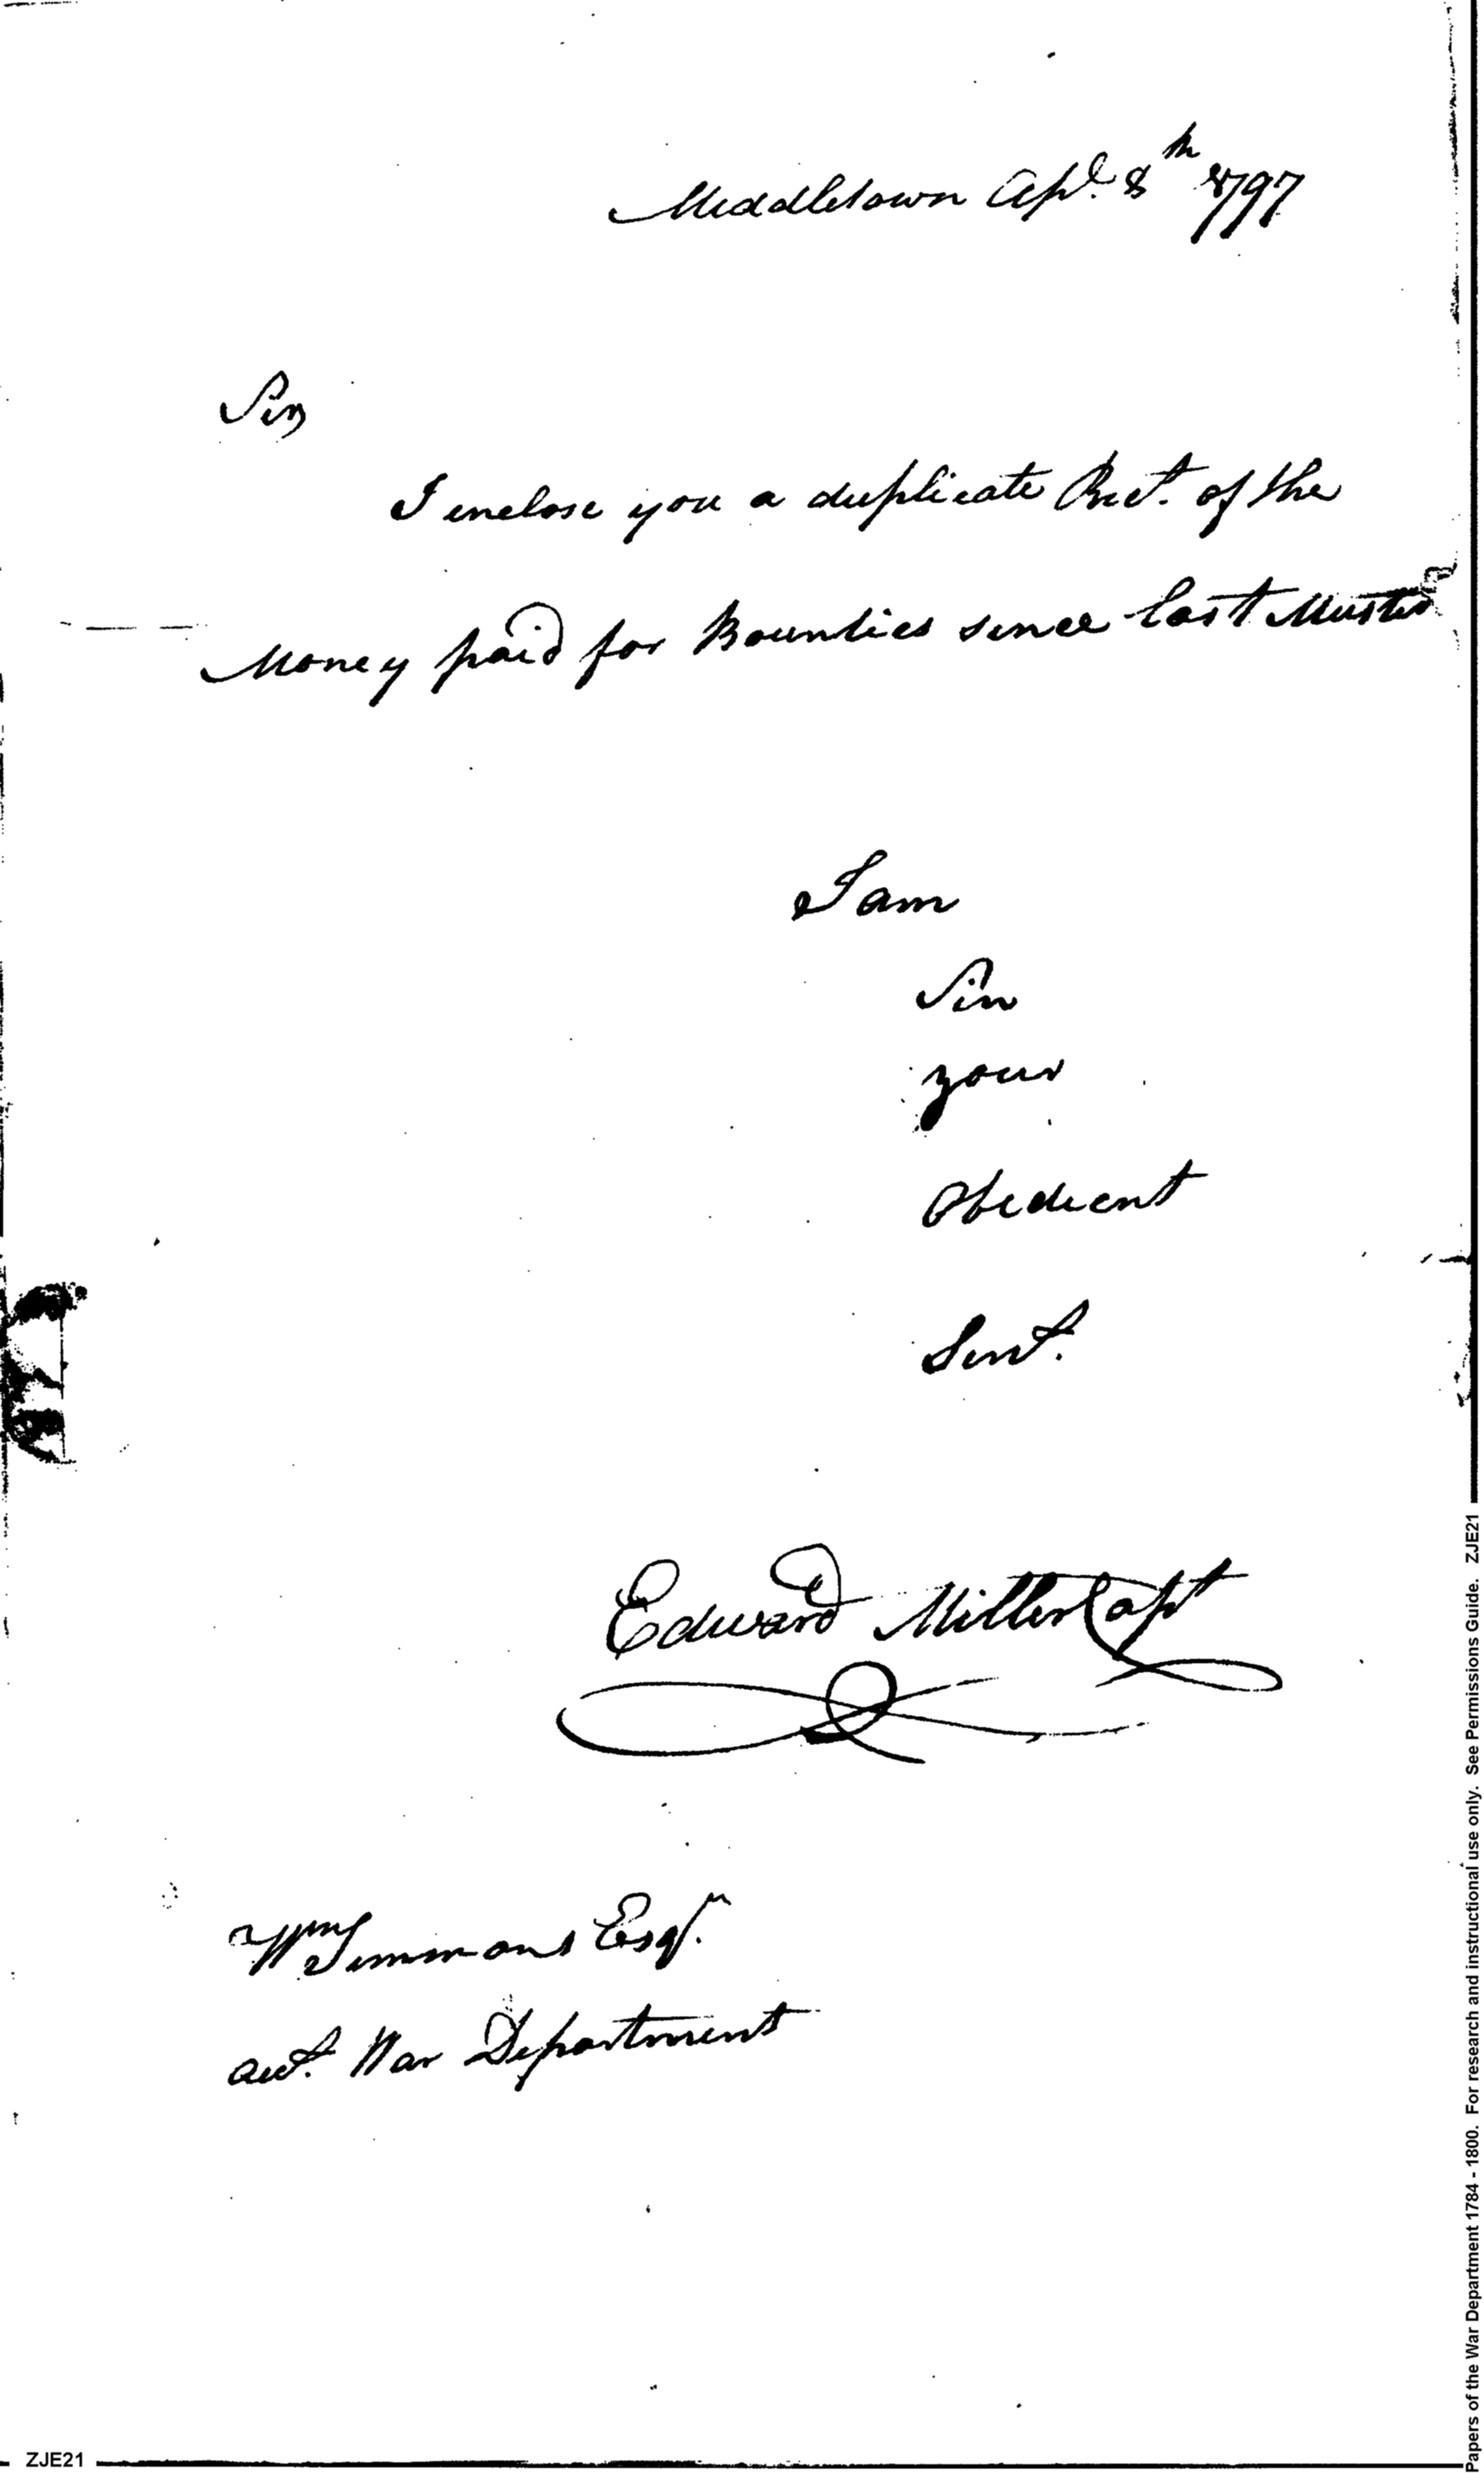 Middletown Apl. 8th 1797
Sir,
I enclose you a duplicate Rect. of the
Money paid for Bounties since last Muster
I am
Sir
your
Obedient
Servt.
Edward Miller Capt
Wm Simmons Esqr.
acct. War Department
ZJE21
Papers of the War Department 1784 - 1800. For research and instructional use only. See Permissions Guide. ZJE21